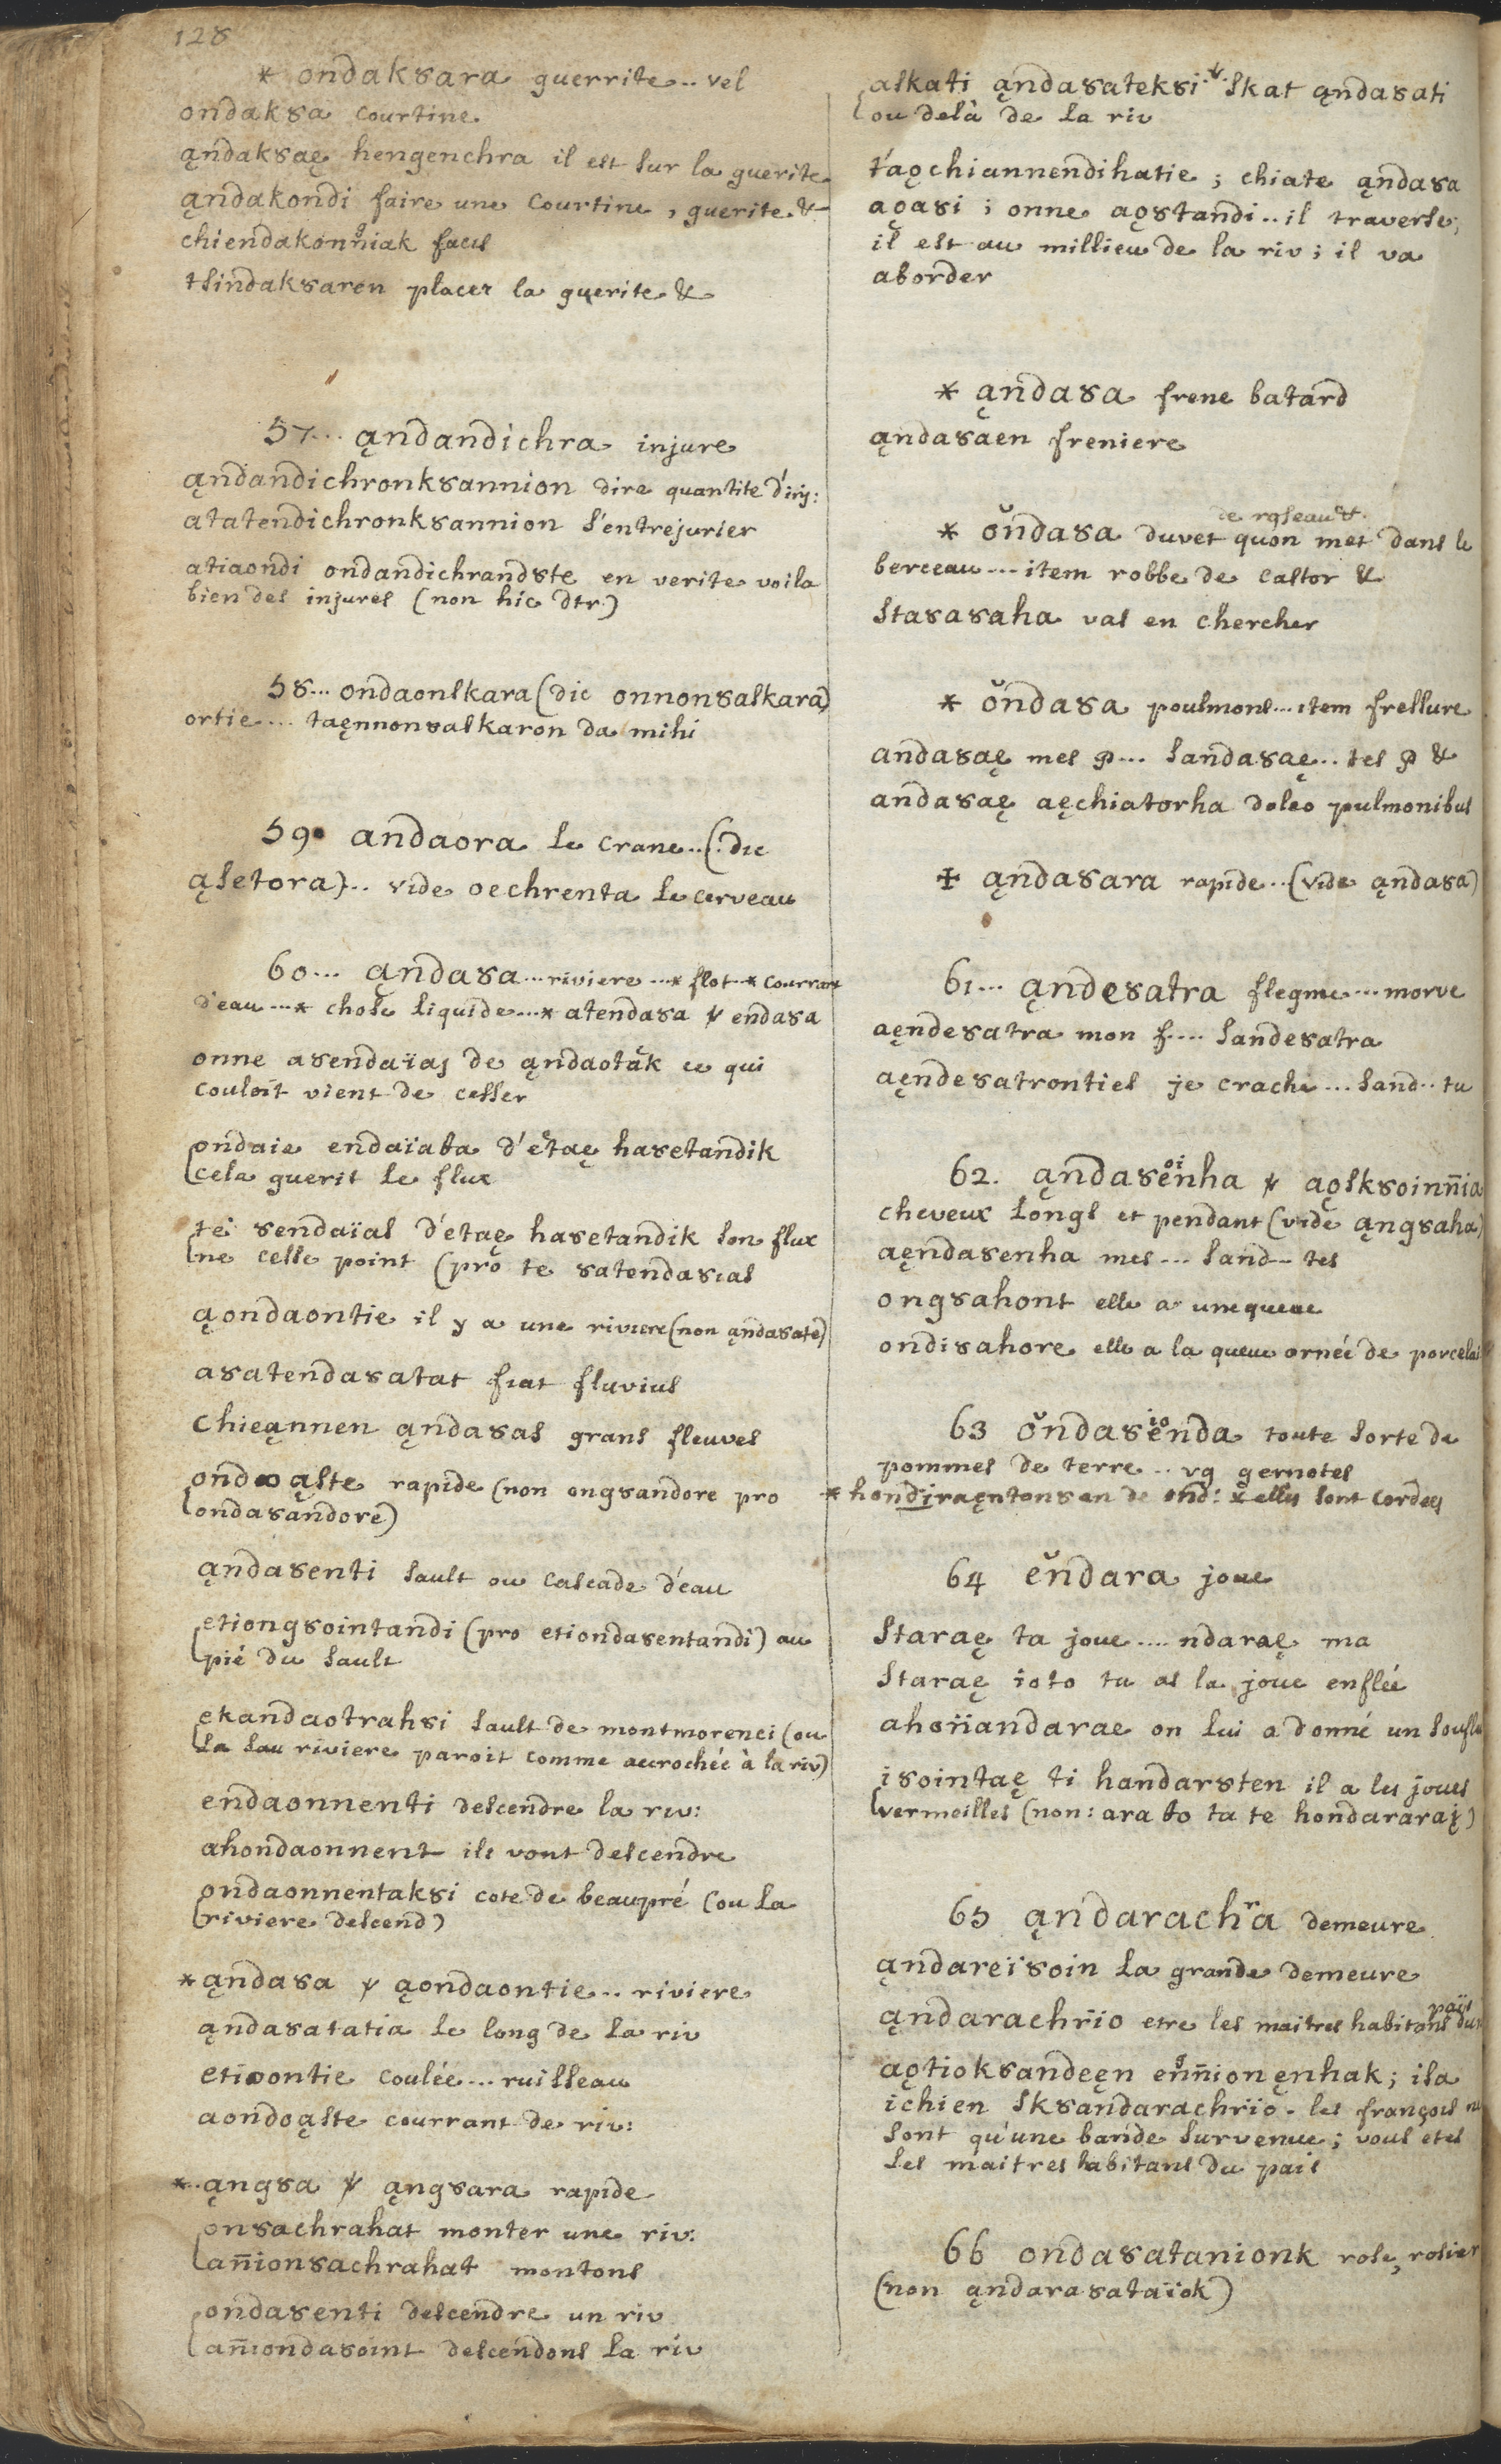 128
* ondak8ara guerrite.. vel
ondak8a courtine
ąndak8aę hengenchra il est sur la guerite
ąndakondi faire une courtine, guerite &
chiendakonniak facis
tsindak8aren placer la guerite &
57... ąndandichra injure
ąndandichronk8annion dire quantite d'inj:
atatendichronk8annion s'entrejurier
atiaondi ondandichrand8te en verite voila
bien des injures (non hic dtr)
58... ondaonskara (dic onnon8askara)
ortie.... taęnnon8askaron da mihi
59. andaora le crane..(.dic
ąsetora).. vide oechrenta le cerveau
60... ąnda8a...riviere...* flot..* courrant
d'eau...* chose liquide...* atenda8a ꝟ enda8a
onne a8endaïaj de ąndaotak ce qui
couloit vient de cesser
ondaie endaïata d'etaę ha8etandik
cela guerit le flux
te 8endaïas d'etaę ha8etandik son flux
ne cesse point (pro te 8atenda8ias
ąondaontie il y a une riviere (non ąnda8ate)
a8atenda8atat fiat fluvius
chieąnnen ąnda8as grans fleuves
ondoąste rapide (non ong8andore pro
onda8andore)
ąnda8enti sault ou cascade d'eau
etiong8ointandi (pro etionda8entandi) au
pié du sault
ekandaotrah8i sault de montmorenci (ou
la riviere paroit comme accrochée à la riv)
endaonnenti descendre la riv:
ahondaonnent ils vont descendre
ondaonnentak8i cote de beaupré (ou la
riviere descend)
* ąnda8a ꝟ ąondaontie.. riviere
ąnda8atatia le long de la riv
etioontie coulée... ruisseau
aondoąste courrant de riv:
*. ąng8a ꝟ ąng8ara rapide
on8achrahat monter une riv:
añion8achrahat montons
onda8enti descendre un riv
añionda8oint descendons la riv
askati ąnda8atek8i ꝟ skat ąnda8ati
ou delà de la riv
t'aǫchiannendihatie ; chiate ąnda8a
aǫa8i ; onne aǫ8tandi.. il traverse;
il est au millieu de la riv ; il va
aborder
* ąnda8a frene batard
ąnda8aen freniere
de r8seau &
* onda8a duvet quon met dans le
berceau... item robbe de castor &
sta8a8aha vas en chercher
* onda8a poulmons... item fressure
anda8aę mes p... sanda8aę.. tes p &
anda8aę aęchiatorha doleo pulmonibus
+ ąnda8ara rapide.. (vide ąnda8a)
61... ąnde8atra flegme... morve
aęnde8atra mon f.... sande8atra
aęnde8atronties je crache... sand.. tu
62. ąnda8enha ꝟ aǫsk8oinñia
oi
cheveux longs et pendant (vide ąng8aha)
aęnda8enha mes... sand-- tes
ong8ahont elle a une queue
ondi8ahore elle a la queue ornée de porcelai
63 onda8enda toute sorte de
io
pommes de terre.. vg gernotes
* hondiraęnton8an de ond: * elles sont cordées
64 endara joue
staraę ta joue.... ndaraę ma
staraę ioto tu as la joue enflée
ahoñandarae on lui a donné un soufle
i8ointaę ti handar8ten il a les joues
vermeilles (non: ara to ta te hondararaį)
65 ąndarachra demeure
ąndareï8oin la grande demeure
ąndarachrïo etre les maitres habitans du
païs
aǫtiok8andeęn eññionęnhak; isa
ichien sk8andarachrïo. les françois ne
sont qu'une bande survenue ; vous etes
les maitres habitans du païs
66 onda8atanionk rose, rosier
(non ąndara8ataïok)